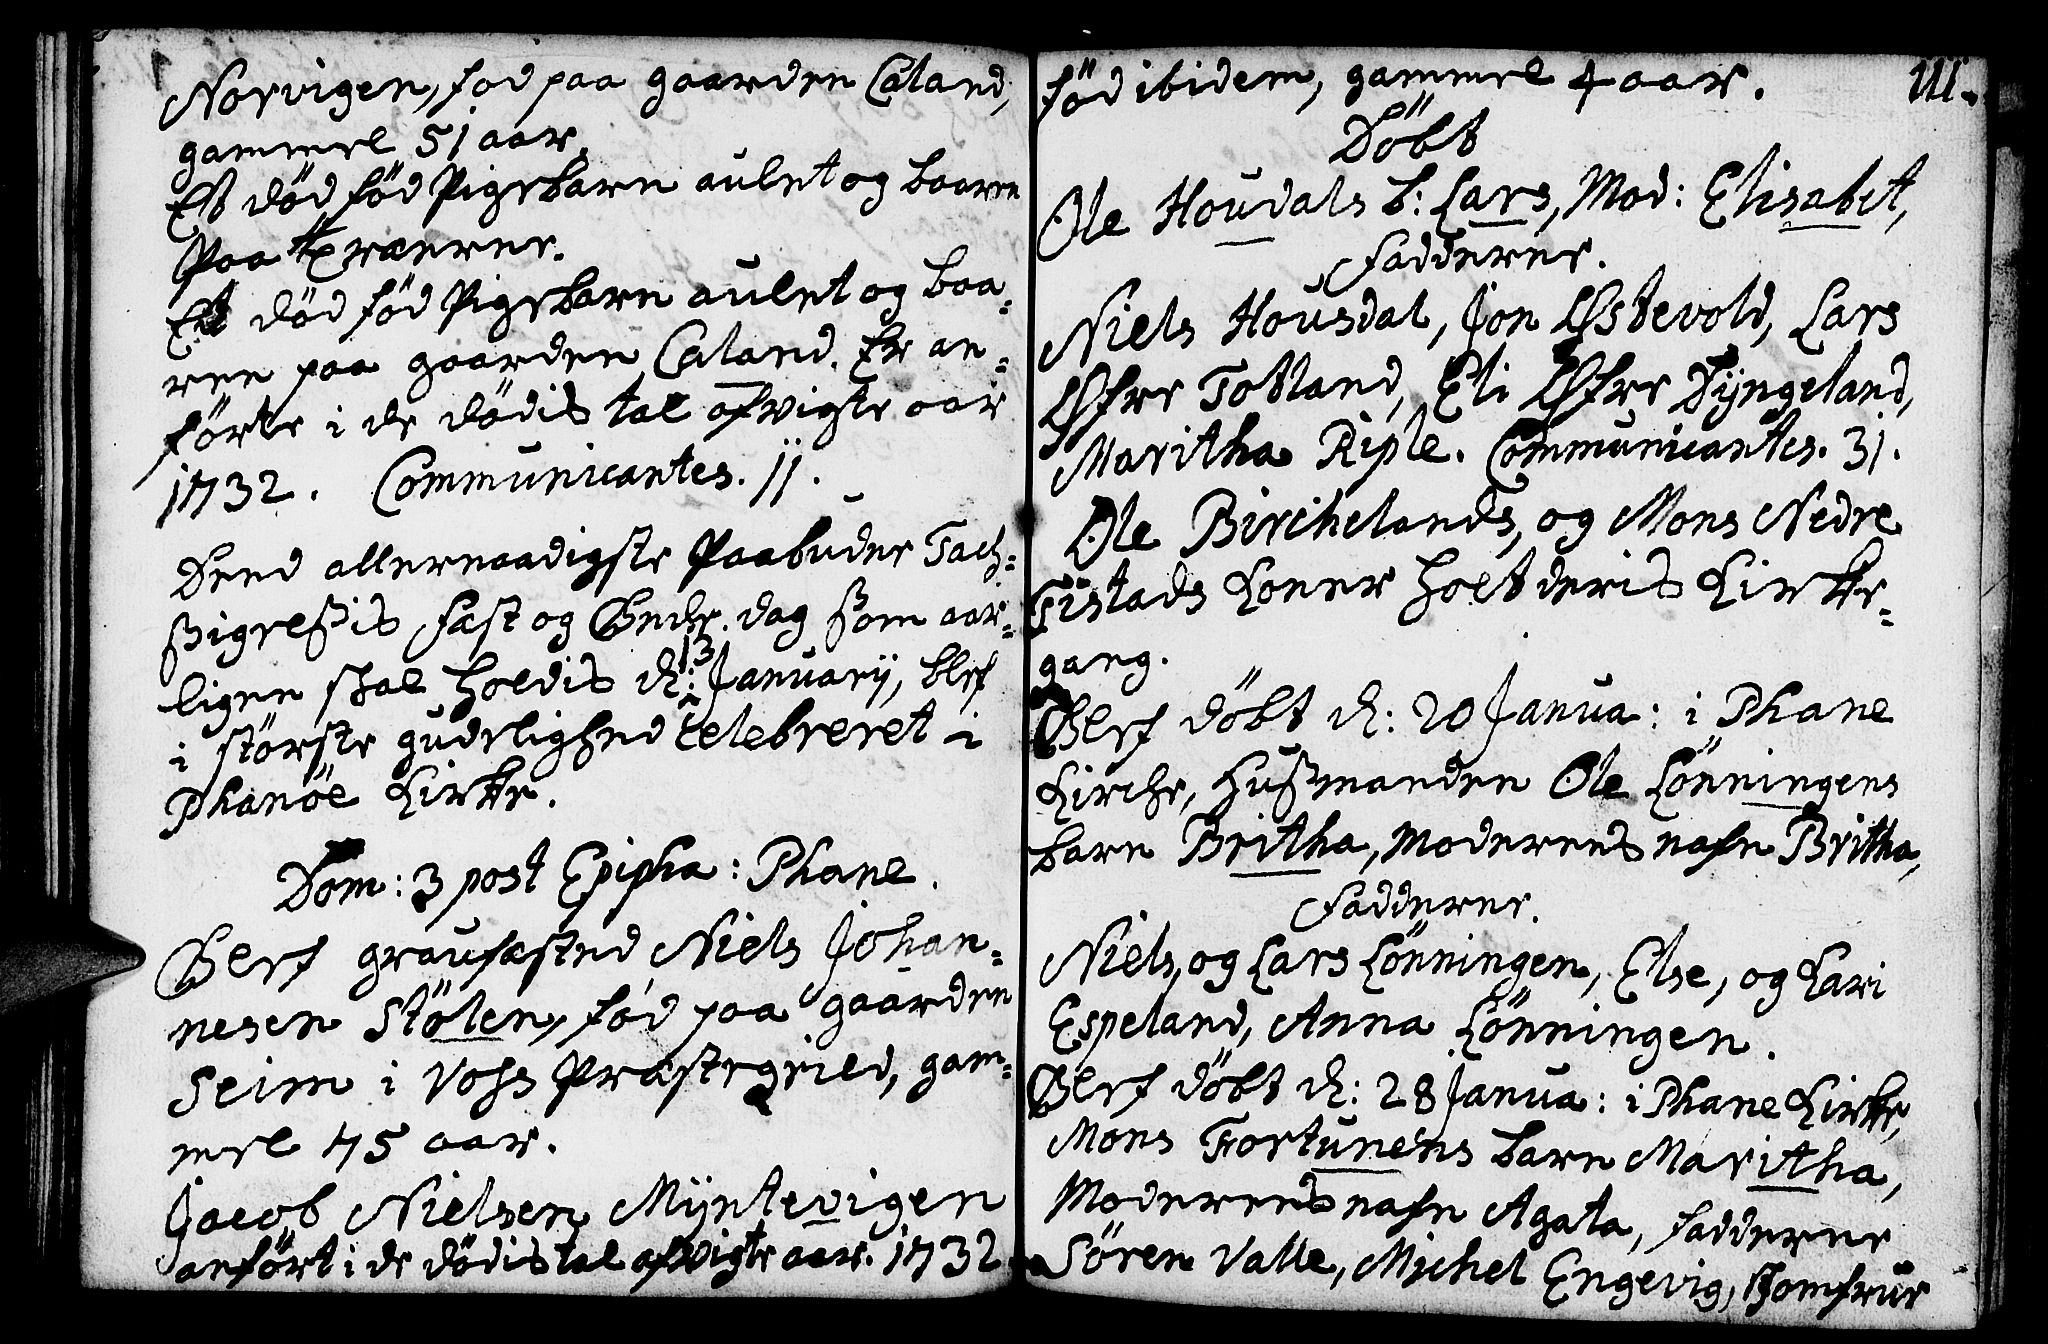 Norvigen, fød paa gaarden Caland,
gammel 51 aar.
Et død fød Pigebarn aulet og baaren
paa Træerne.
Et død fød Pigebarn aulet og baa-
ren paa gaarden Caland. Er an-
förte i de dödis tal afvigte aar
1732. Communicantes. 11.
Dend allernaadigste Paabudne Tach-
sigelsis fæst og Bede-dag som aar-
ligen skal holdis d: 13 Januarij, blef
i störste gudelighed celebreret i
Phanöe Kirke.
Dom: 3 post Epipha: Phane.
Blef graufæsted Niels Johan-
nesen Stölen, fød paa gaarden
Seim i Voss Præstegield, gam-
mel 75 aar.
Jacob Nielsen Mÿntevigen
anfört i de dödis tal afvigte aar. 1732
föd ibidem, gammel 4 aar. 111.
Döbt
Ole Houdals b: Lars, Mod: Elisabet,
Fadderne.
Niels Housdal, Jon Østevold, Lars
Øfre Totland, Eli Øfre Dÿngeland,
Maritha Riple. Communicantes. 31.
Ole Birchelands, og Mons Nedre
Tistads Koner holt deris Kirke-
gang.
Blef döbt d: 20 Janua: i Phane
Kirche, Husmanden Ole Lönningens
barn Britha, Moderens nafn Britha,
Fadderne.
Niels, og Lars Lönningen, Else, og Kari
Espeland, Anna Lönningen.
Blef döbt d: 28 Janua: i Phane Kirke,
Mons Fortunens barn Maritha,
Moderens nafn Agata, fadderne
Sören Valle, Michel Engevig, Jomfrue